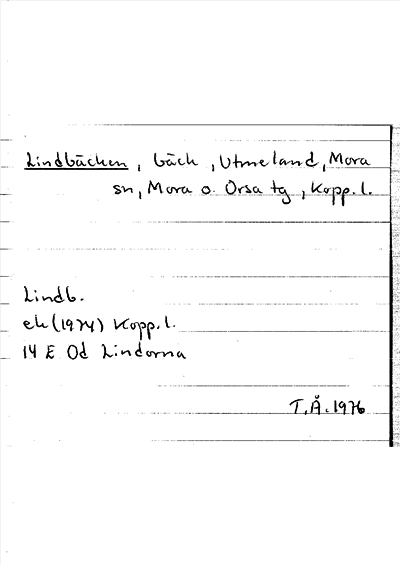 Lindbäcken, bäck, Utmeland, Mora
sn, Mora o. Orsa tg, Kopp. l.
Lindb.
ek (1974) Kopp. l.
14 E 0d Lindorna
T.Å. 1976